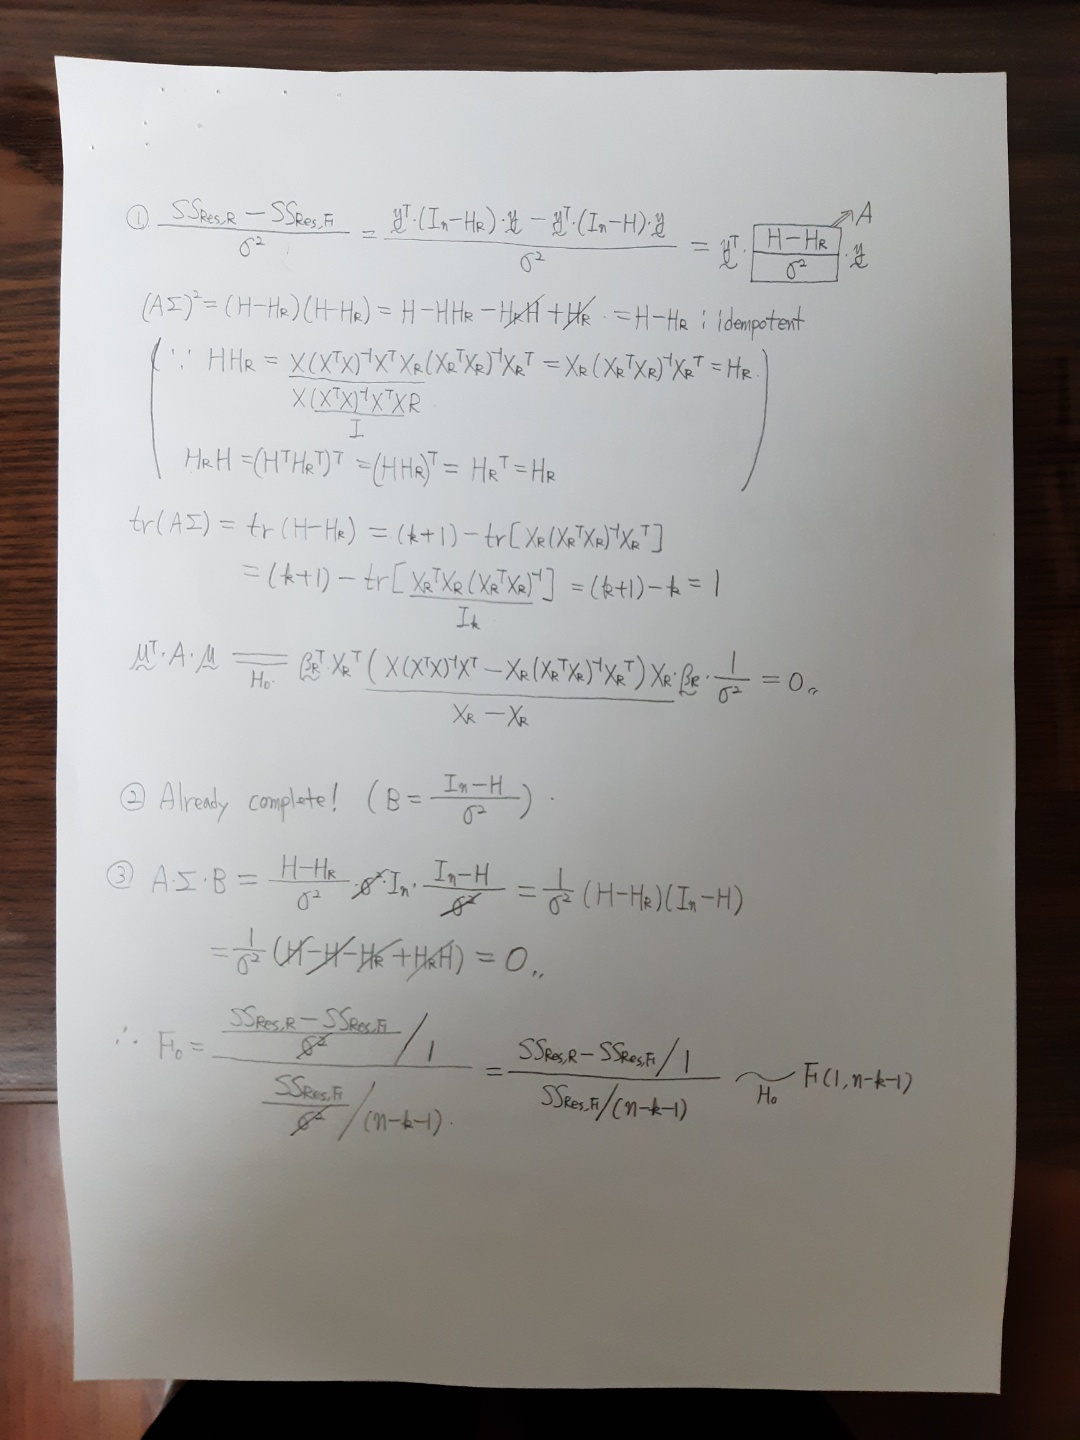 ① (SS_Res,R − SS_Res,F)/σ² = (y̰ᵀ·(Iₙ−H_R)·y̰ − y̰ᵀ·(Iₙ−H)·y̰)/σ² = y̰ᵀ· (H−H_R)/σ² ·y̰ ⇗ A
(AΣ)² = (H−H_R)(H−H_R) = H−HH_R−H_RH+H_R. = H−H_R ; idempotent
(∵ HH_R = X(XᵀX)⁻¹XᵀX_R(X_RᵀX_R)⁻¹X_Rᵀ = X_R(X_RᵀX_R)⁻¹X_Rᵀ = H_R.
X(XᵀX)⁻¹XᵀXR
I
H_RH = (HᵀH_Rᵀ)ᵀ = (HH_R)ᵀ = H_Rᵀ = H_R)
tr(AΣ) = tr(H−H_R) = (k+1) − tr[X_R(X_RᵀX_R)⁻¹X_Rᵀ]
= (k+1) − tr[X_RᵀX_R(X_RᵀX_R)⁻¹] = (k+1)−k = 1
I_k
μ̰ᵀ·A·μ̰ = β̰_Rᵀ·X_Rᵀ(X(XᵀX)⁻¹Xᵀ − X_R(X_RᵀX_R)⁻¹X_Rᵀ)X_R·β̰_R·1/σ² = 0〃
H₀. X_R − X_R
② Already complete! (B = (Iₙ−H)/σ²).
③ A·Σ·B = (H−H_R)/σ² ·σ²·Iₙ· (Iₙ−H)/σ² = 1/σ² (H−H_R)(Iₙ−H)
= 1/σ² (H−H−H_R+H_RH) = 0〃
∴ F₀ = ((SS_Res,R − SS_Res,F)/σ² / 1) / (SS_Res,F/σ² / (n−k−1)). = (SS_Res,R − SS_Res,F / 1) / (SS_Res,F/(n−k−1)) ~ F(1, n−k−1)
H₀